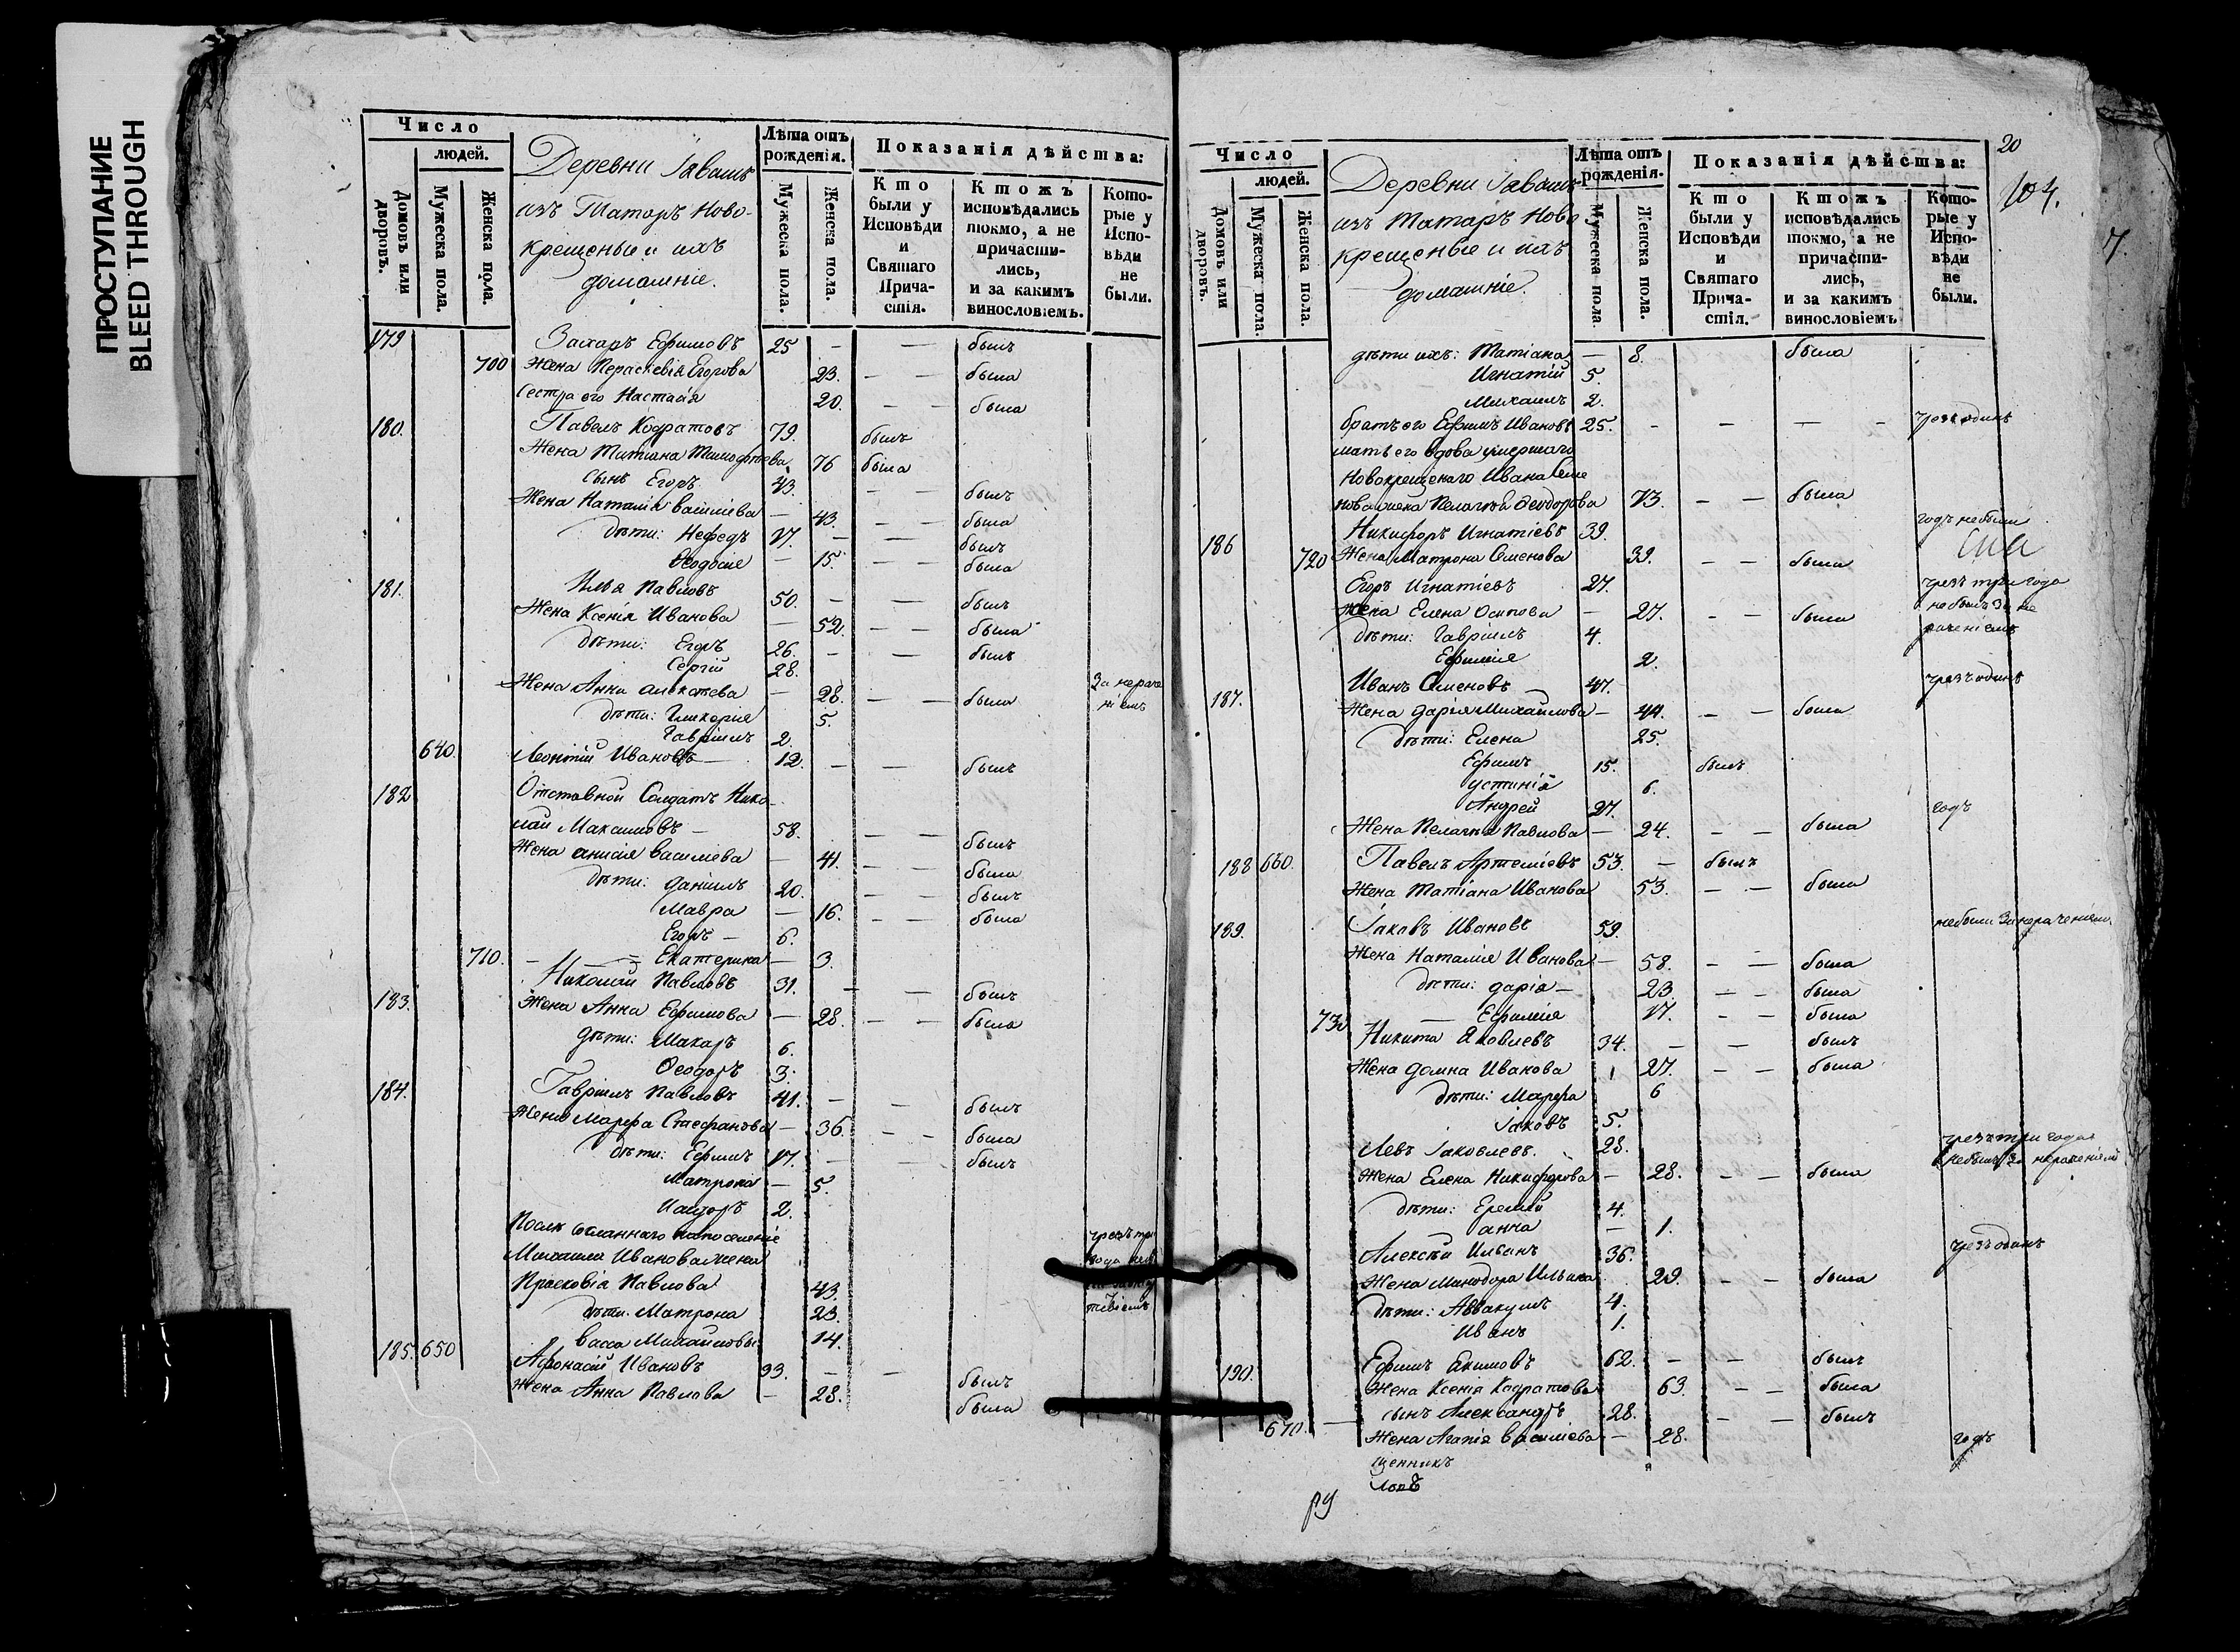 ПРОСТУПАНИЕ
BLEED THROUGH
Число
людей.
Домовъ или дворовъ.
Мужеска пола.
Женска пола.
Деревни
изъ Татаръ Ново-
крещеные и ихъ
домашніе.
Лѣта отъ рожденія.
Мужеска пола.
Женска пола.
Показанія дѣйства:
Кто были у Исповѣди и Святаго Прича-стія.
Ктожъ исповѣдались токмо, а не причасти-лись, и за какимъ винословіемъ.
Кото-рые у Испо-вѣди не были.
179 Захаръ Ефимовъ 25 — — былъ
700 Жена Параскевія Егорова 23. — — была
Сестра его Настасія 20. — — была
180. Павелъ Кодратовъ 79. былъ
Жена Татіана Тимофеева 76 была
сынъ Егоръ 43. — — былъ
Жена Наталія Василіева — 43. — — была
дѣти: Нефедъ 17. — — былъ
Ѳеодосіе — 15. — — была
181. Илья Павловъ 50. — — былъ
Жена Ксенія Иванова — 52. — — была
дѣти: Егоръ 26. — — былъ
Сергій 28.
Жена Анна — 28. — — была За нераче
дѣти: Гликерия 5. ніемъ
Гавріилъ 2.
640. Леонтій Ивановъ — 12. — — былъ
182 Отставной Солдатъ Нико-
лай Максимовъ — 58. — — былъ
Жена Анисія Василіева — 41. — — была
дѣти: Даніилъ 20. — — былъ
Мавра — 16. — — была
Егоръ — 6.
710. — — Екатерина — 3.
183. Николай Павловъ 31. — — былъ
Жена Анна Ефимова — 28. — — была
дѣти: Макаръ 6.
Ѳеодоръ 3.
184. Гавріилъ Павловъ 41. — — былъ
Жена Марфа Стефанова — 36. — — была
дѣти: Ефимъ 17. — — былъ
Матрона — 5.
2.
Послѣ сосланнаго на поселеніе
Михаила Иванова жена чрезъ три
Прасковія Павлова 43. года
дѣти: Матрона 23.
Васса Михайловы 14.
185. 650 Афонасій Ивановъ 33. — — былъ
Жена Анна Павлова — 28. была
20
104.
7.
Число
людей.
Домовъ или дворовъ.
Мужеска пола.
Женска пола.
Деревни
изъ Татаръ Ново
крещеные и ихъ
домашніе.
Лѣта отъ рожденія.
Мужеска пола.
Женска пола.
Показанія дѣйства:
Кто были у Исповѣди и Святаго Прича-стія.
Ктожъ исповѣдались токмо, а не причасти-лись, и за какимъ винословіемъ
Кото-рые у Испо-вѣди не были.
дѣти ихъ: Татіана — 8. была
Игнатій 5.
Михаилъ 2.
братъ его Ефимъ Ивановъ 25. — — — — чрезъ одинъ
мать его вдова умершаго
Новокрещенаго Ивана Семе
нова жена Пелагѣя Ѳеодорова 73. — — была
186 Никифоръ Игнатіевъ 39. годъ небыли
720 Жена Матрона Семенова 39. — — была
Егоръ Игнатіевъ 27. чрезъ три года
Жена Елена Осипова — 27. — — была небылъ за не
дѣти: Гавріилъ 4. раченіемъ
Ефимія 2.
187. Иванъ Семеновъ 47. чрезъ одинъ
Жена Дарія Михайлова — 44. — — была
дѣти: Елена 25.
Ефимъ 15. былъ
Устинія 6.
Андрей 27. годъ
Жена Пелагѣя Павлова — 24. — — была
188 660. Павелъ Артеміевъ 53. — былъ
Жена Татіана Иванова 53. — — была
189. Іаковъ Ивановъ 59. небыли За нераченіемъ
Жена Наталія Иванова — 58. — — была
дѣти: Дарія — 23. — — была
730 — Ефимія 17. — — была
Никита Яковлевъ 34. — — былъ
Жена Домна Иванова 27. — — была
дѣти: Марфа 6
Іаковъ 5.
Левъ Іаковлевъ. 28. чрезъ три года
Жена Елена Никифорова — 28. — — была небылъ за нераченіемъ
дѣти: Еремѣй 4.
анна — 1.
Алексѣй Ильинъ 36. чрезъ одинъ
Жена Минодора Ильина 29. — — была
дѣти: Аввакумъ 4.
Иванъ 1.
190. Ефимъ Акимовъ 62. — — былъ
Жена Ксенія Кодратова 63. — — была
670. — сынъ Александръ 28. — — былъ
Жена Агапія Василіева — 28. годъ
щенникъ